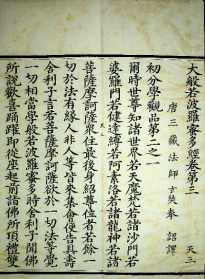 大般若波羅蜜多經卷第三　天三
唐三藏法師玄奘奉　詔譯
初分學觀品第二之一
爾時世尊知諸世界若天魔梵若諸沙門若
婆羅門若健達縛若阿素洛若諸龍神若諸
菩薩摩訶薩眾住最後身紹尊位者若餘一
切於法有緣人非人等皆來集會便告具壽
舍利子言若菩薩摩訶薩欲於一切法等覺
一切相當學般若波羅蜜多時舍利子聞佛
所說歡喜踊躍即從座起前詣佛所頂禮雙